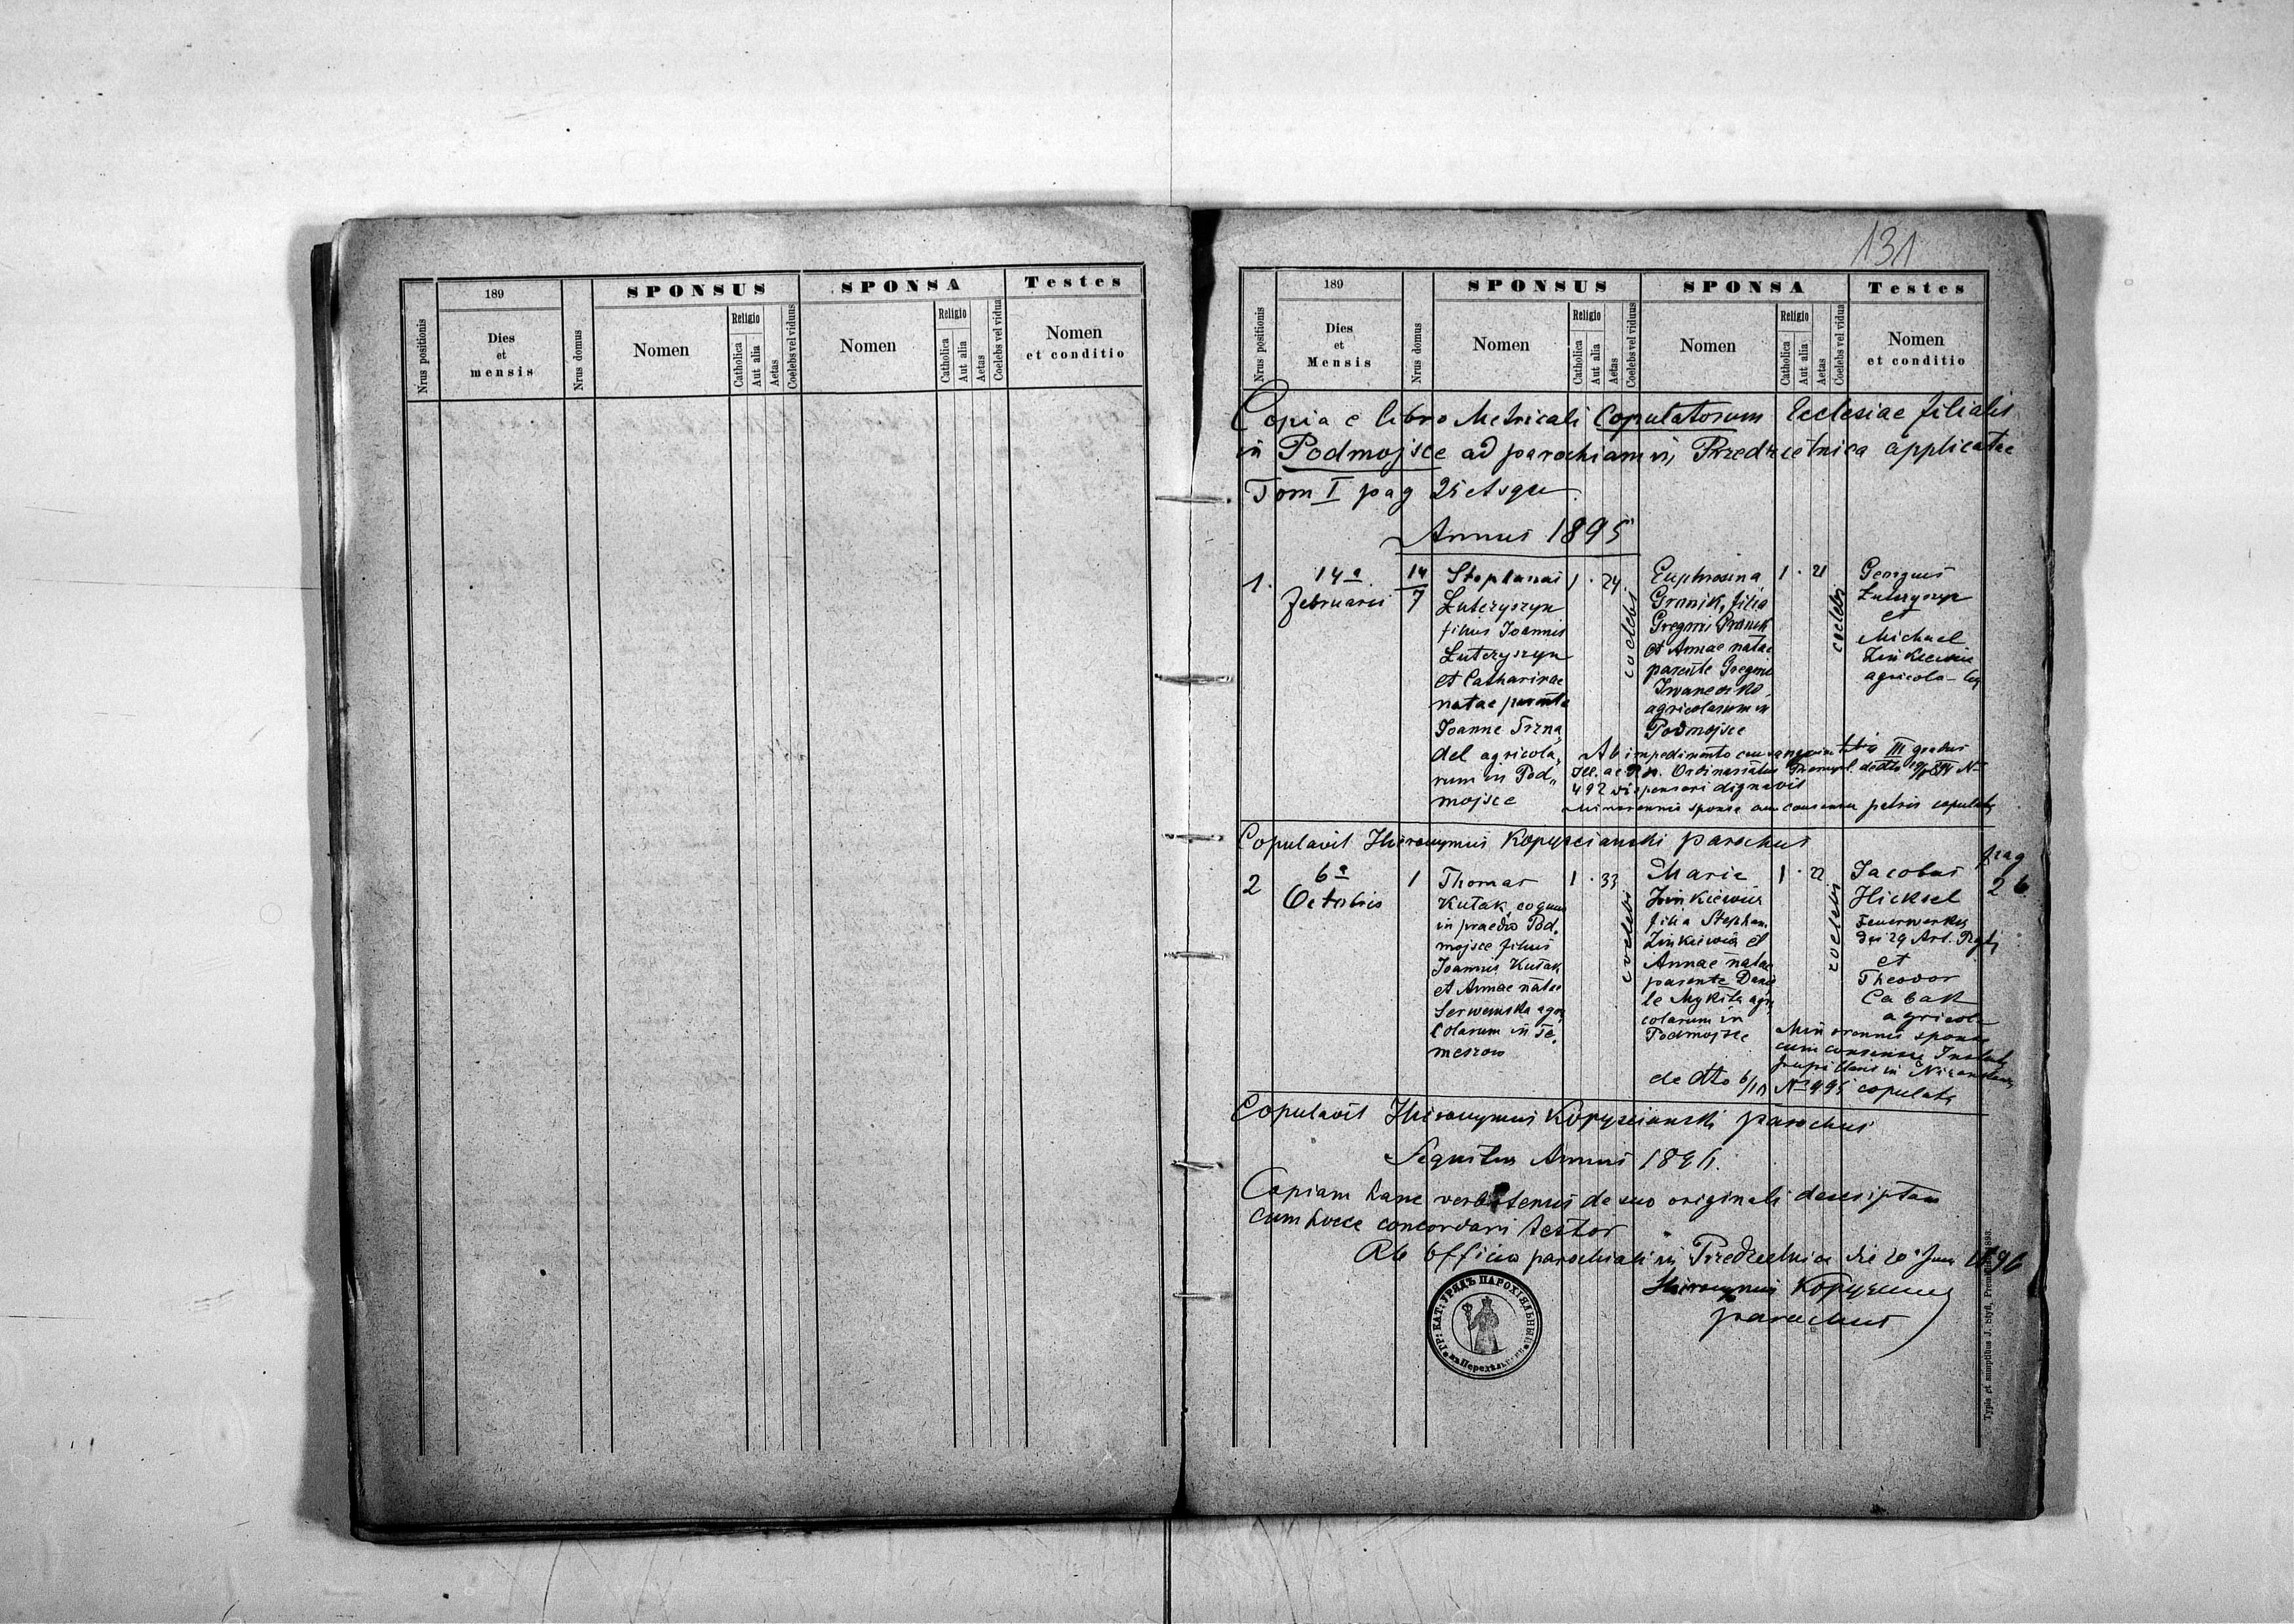 189
Nrus positionis
Dies
et
mensis
Nrus domus
SPONSUS
Nomen
Religio
Catholica
Aut alia
Aetas
Coelebs vel viduus
SPONSA
Nomen
Religio
Catholica
Aut alia
Aetas
Coelebs vel vidua
Testes
Nomen
et conditio
131
189
Nrus positionis
Dies
et
Mensis
Nrus domus
SPONSUS
Nomen
Religio
Catholica
Aut alia
Aetas
Coelebs vel viduus
SPONSA
Nomen
Religio
Catholica
Aut alia
Aetas
Coelebs vel vidua
Testes
Nomen
et conditio
Copia e libro Metricali Copulatorum Ecclesiae filialis
in Podmojsce ad parochiam in Przedzielnica applicatae
Tom I pag 25 et sque
Annus 1895
1.
14a
Februarii
14
7
Stephanus
Luteryszyn
filius Joannis
Luteryszyn
et Catharinae
natae parente
Joanne Trzna
del agricola
rum in Pod„
mojsce
1 . 24
coelebs
Euphrosina
Granik, filia
Gregorii Granik
et Annae natae
parente Gregorio
agricolarum in
Podmojsce
1 . 21
coelebs
Georgius
Luteryszyn
et
Michael
Zinkiewicz
agricola
Ab impedimento consanguinitatis III gradus
Ill. ac R. Ordinariatus Praemysl. de dto
492 dispensari dignavit
Minorennis sponsa cum consensu patris copulata
Copulavit Hieronymus Kopyscianski parochus
pag
26
2
6a
Octobris
1
Thomas
Kutak, coquus
in praedio Pod„
mojsce filius
Joannis Kutak
et Annae natae
agri
colarum in
1 . 33
coelebs
Maria
Zinkiewicz
filia Stephani
Zinkiewicz et
Annae natae
parente Dani
le Mykita agri
colarum in
Podmojsce
1 . 22
coelebs
Jacobus
Hicksel
Feuerwerker
des 29 Art. Rgts
et
Theodor
Cabak
agricola
Minorennis sponsa
cum consensu
in
de dto 6/10 No 995 copulata
Copulavit Hieronymus Kopyscianski parochus
Sequitur Annus 1896.
Copiam hanc verbotenus de suo originali descriptam
cum hocce concordari testor
Ab officio parochiali in Przedzielnica die 20 Juni 1896
Hieronymus
parochus
ГР: КАТ: УРЯДЪ ПАРОХІЯЛЬНЫЙ
Typis et sumptibus J. Styfi, Premisliae 1893.